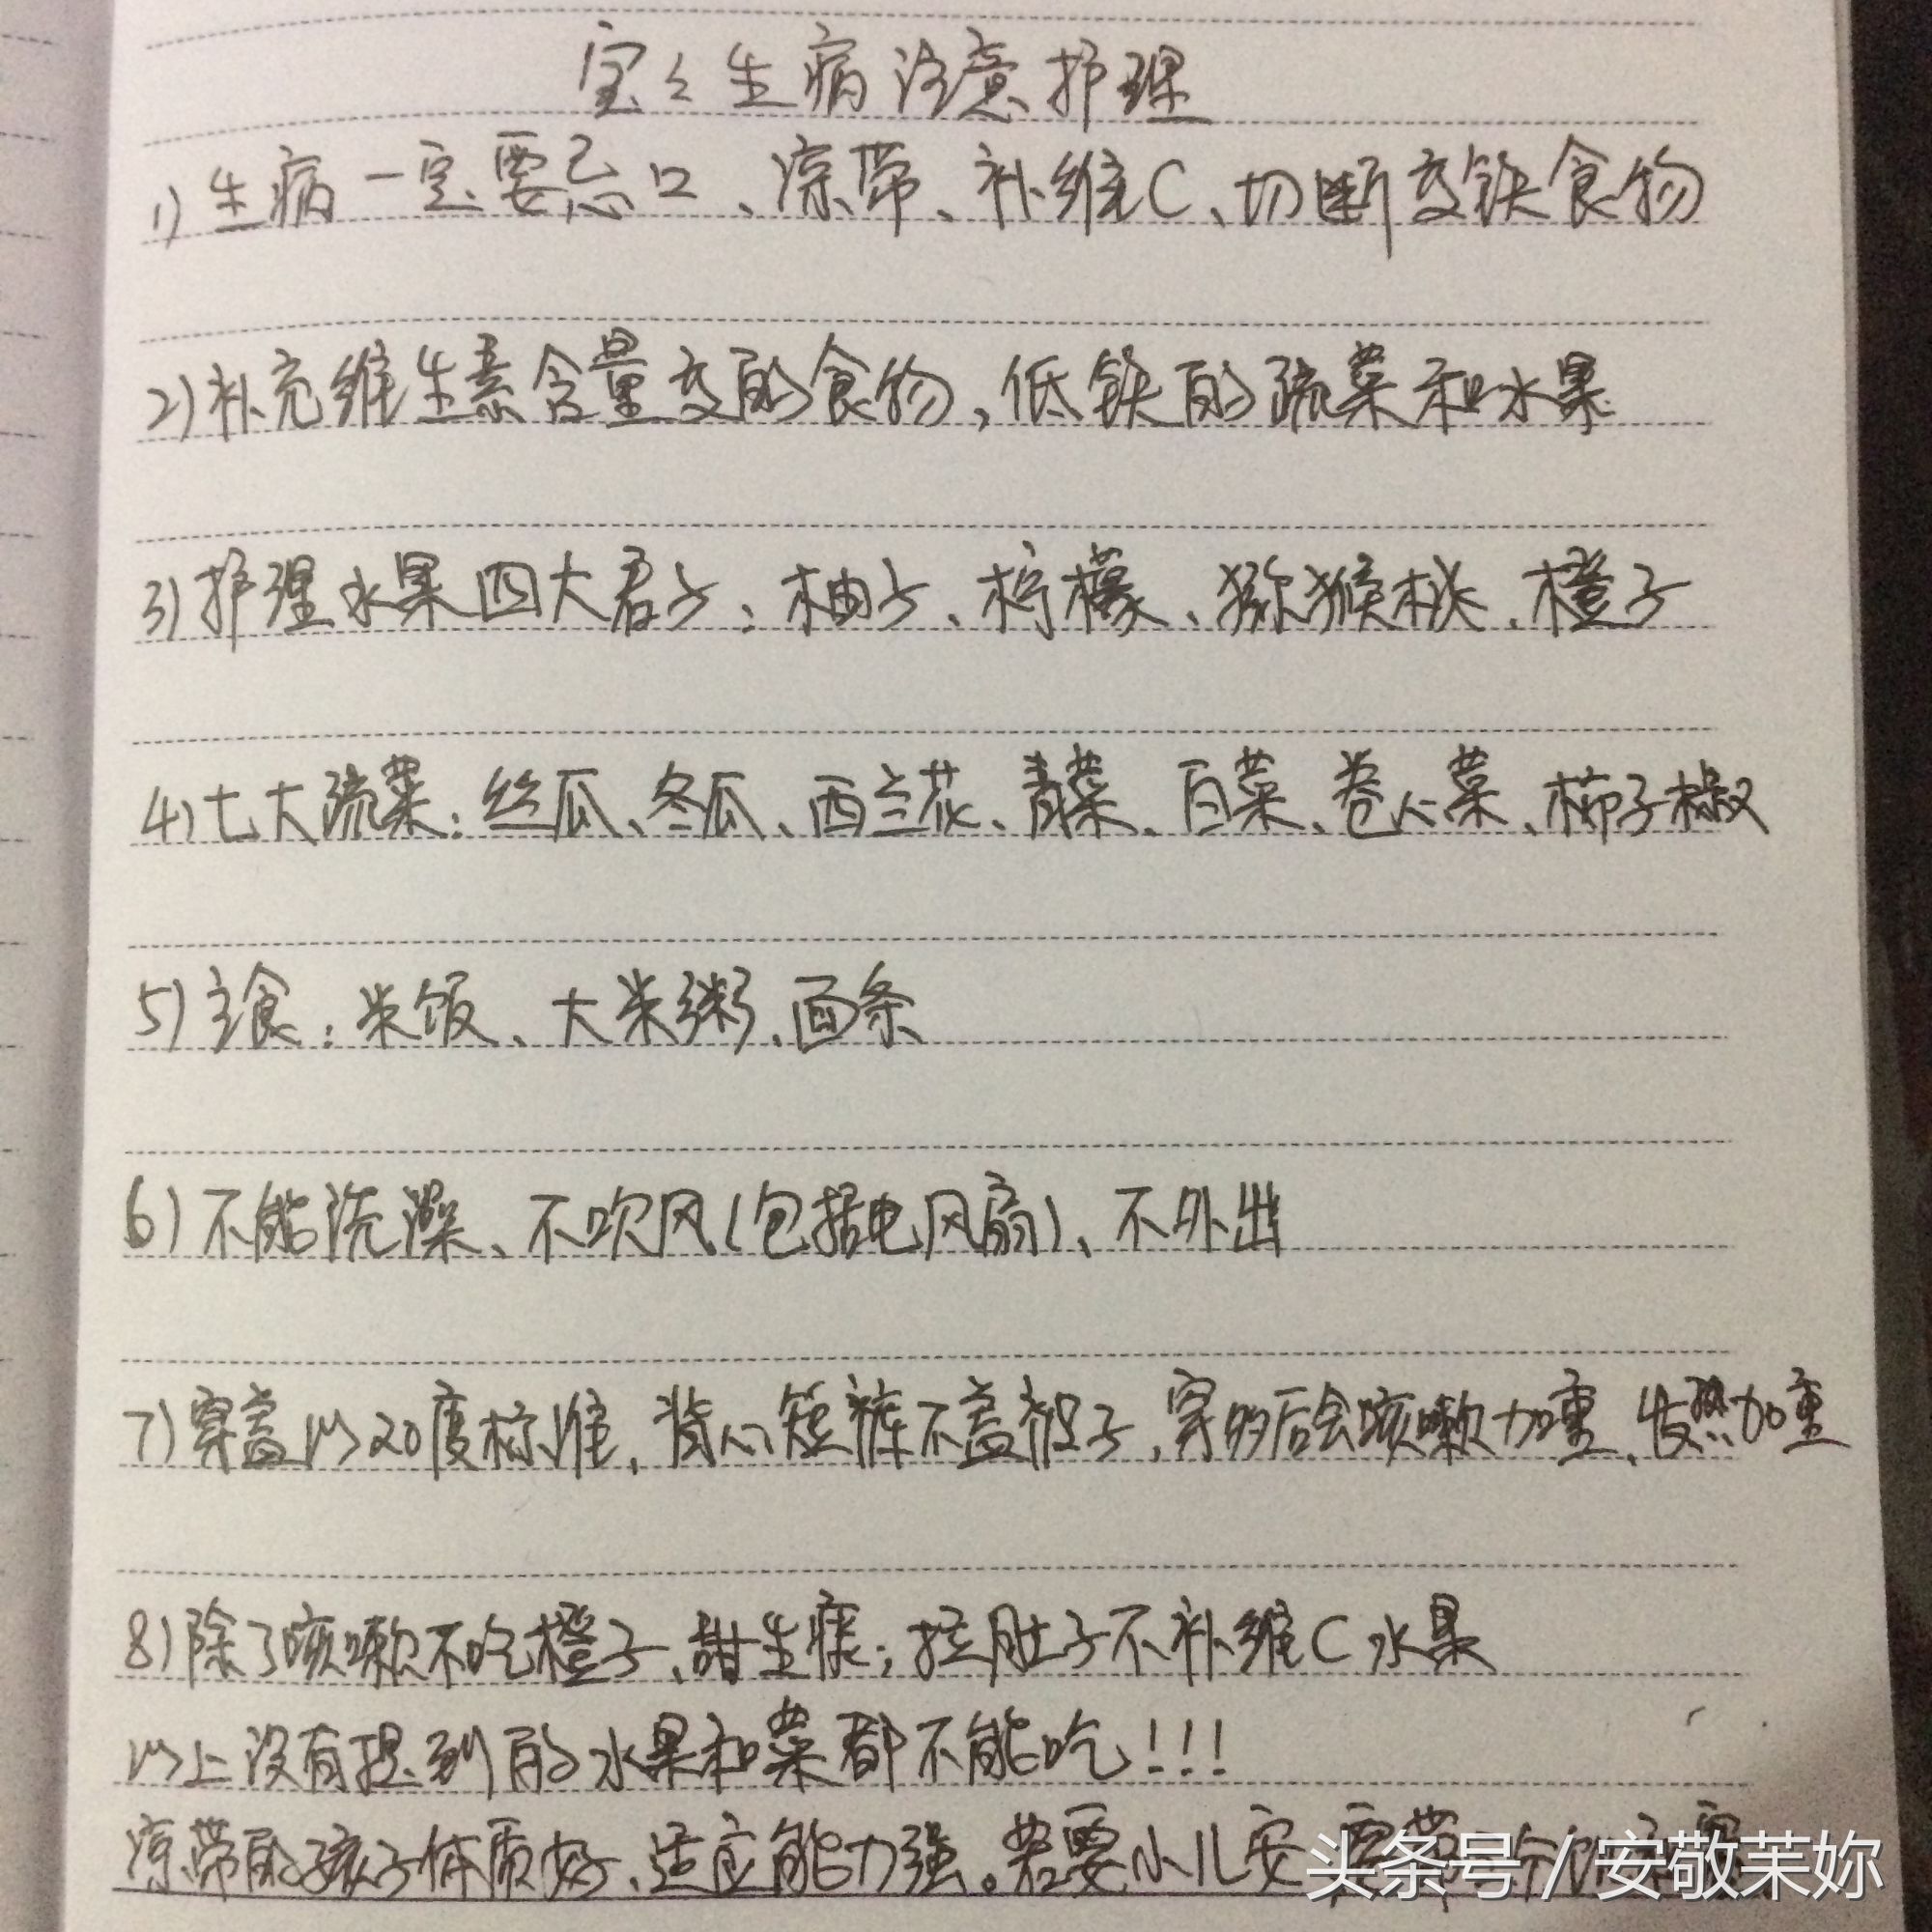 宝々生病注意护理
1)生病一定要忌口、凉带、补维C、切断高铁食物
2)补充维生素含量高的食物,低铁的蔬菜和水果
3)护理水果四大君子:柚子、柠檬、猕猴桃、橙子
4)七大蔬菜:丝瓜、冬瓜、西兰花、青菜、白菜、卷心菜、柿子椒
5)主食:米饭、大米粥、面条
6)不能洗澡、不吹风(包括电风扇)、不外出
7)穿盖以20度标准,背心短裤不盖被子,穿多后会咳嗽加重、发热加重
8)除了咳嗽不吃橙子、甜生痰;拉肚子不补维C水果
以上没有提到的水果和菜都不能吃!!!
凉带的孩子体质好、适应能力强。若要小儿安
头条号 / 安敬茉妳